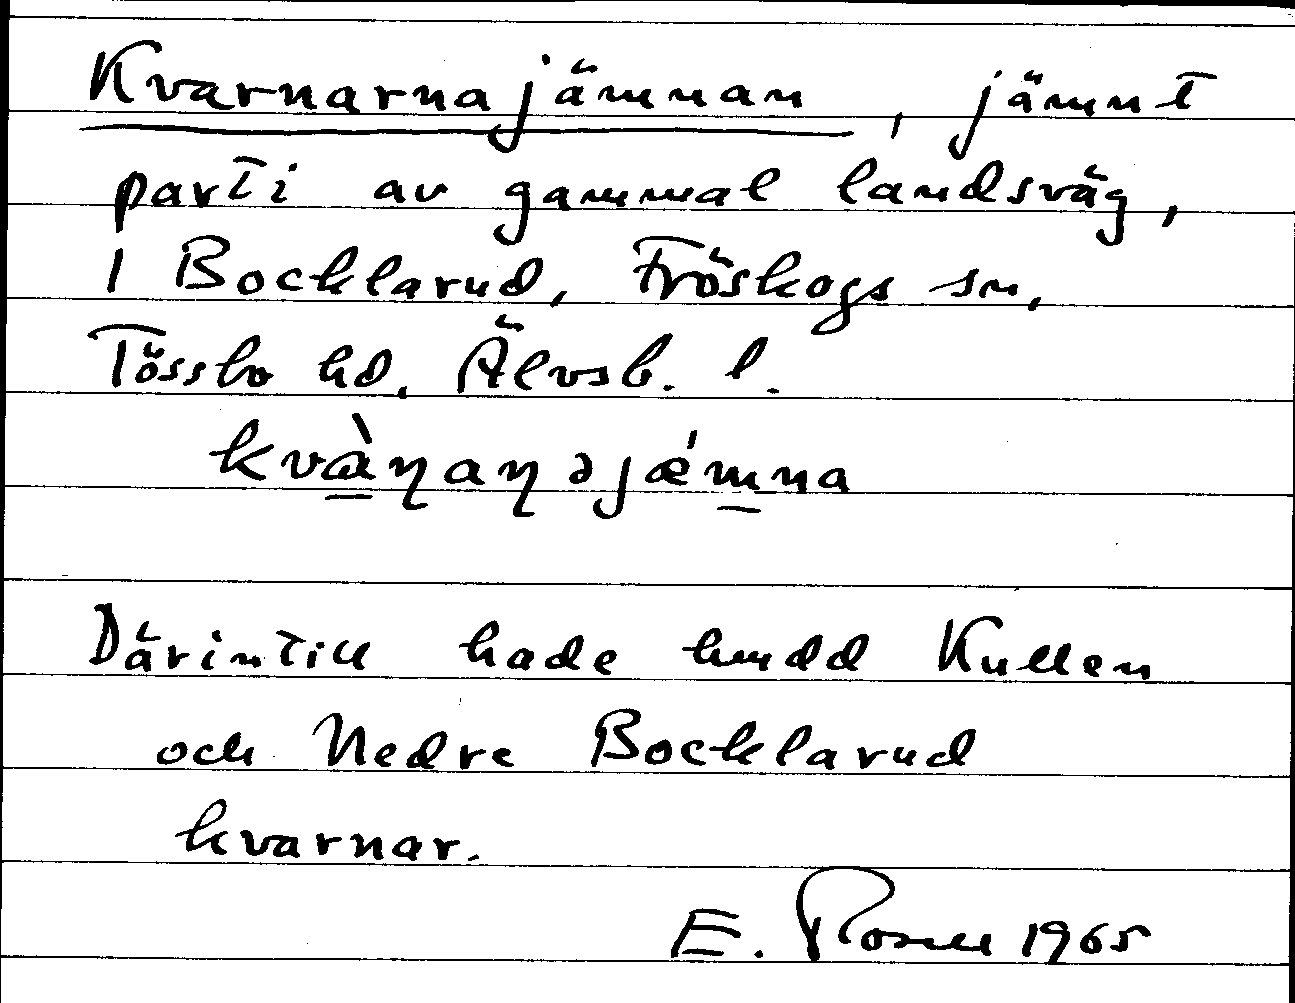 Kvarnarnajämnan, jämnt
parti av gammal landsväg,
I Bocklarud, Fröskogs sn,
Tössbo hd. Älvsb. l.
kvàɳaɳəjǽmna
Därintill hade hmdd Kullen
och Nedre Bocklarud
kvarnar.
E. Rosell 1965